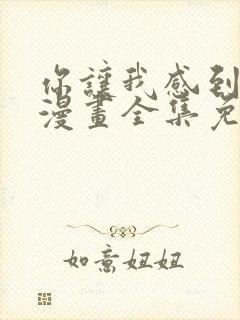 你讓我感到
漫畫全集免
如意妞妞